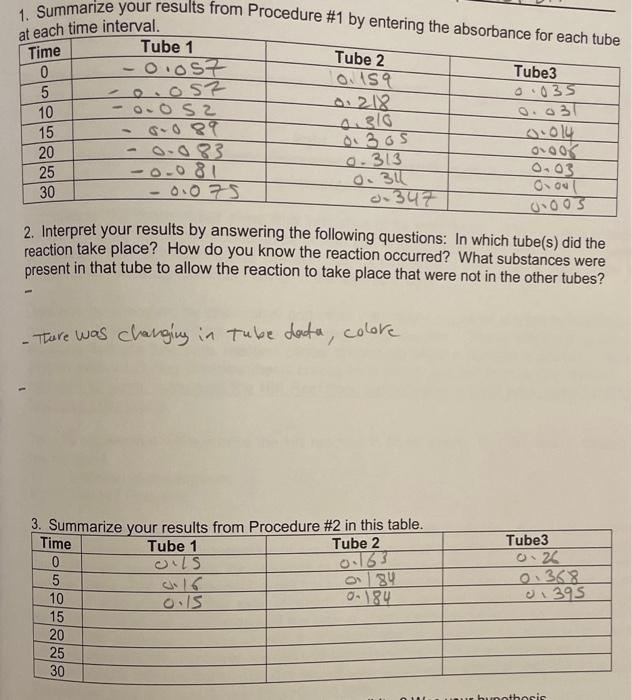 1. Summarize your results from Procedure #1 by entering the absorbance for each tube
at each time interval.
Time Tube 1 Tube 2 Tube3
0 -0.057 0.159 0.035
5 -0.057 0.218 0.031
10 -0.052 0.310 0.014
15 -0.089 0.305 0.006
20 -0.083 0.313 0.03
25 -0.081 0.311 0.001
30 -0.075 0.347 0.003
2. Interpret your results by answering the following questions: In which tube(s) did the
reaction take place? How do you know the reaction occurred? What substances were
present in that tube to allow the reaction to take place that were not in the other tubes?
-
- There was changing in tube data, colore
-
3. Summarize your results from Procedure #2 in this table.
Time Tube 1 Tube 2 Tube3
0 0.15 0.163 0.26
5 0.16 0.184 0.368
10 0.15 0.184 0.395
15
20
25
30
your hypothesis